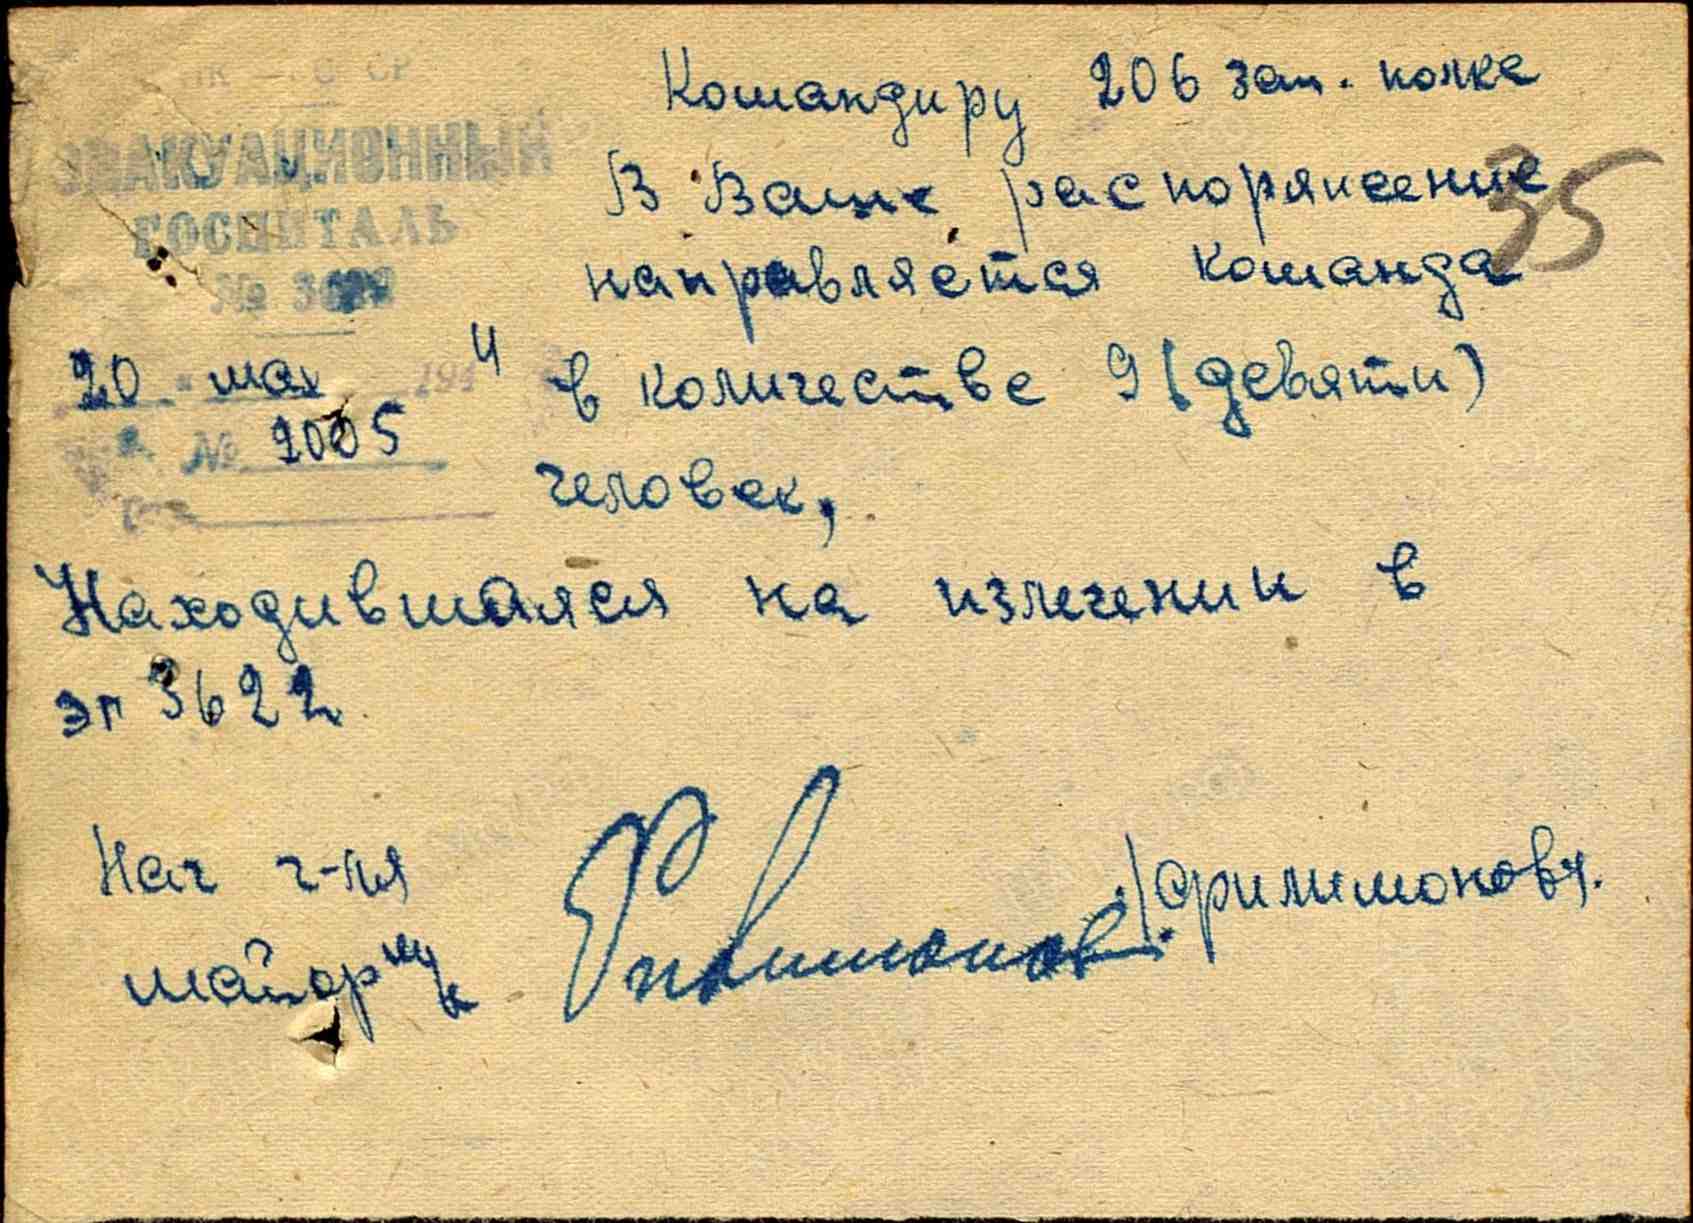 ЭВАКУАЦИОННЫЙ
ГОСПИТАЛЬ
№ 3622
20 мая 1944
№ 2005
Командиру 206 зап. полка
35
В Ваше распоряжение
направляется команда
в количестве 9 (девяти)
человек,
Находившаяся на излечении в
эг 3622
Нач г-ля
майор м/с
Филимонов
/Филимонов/.